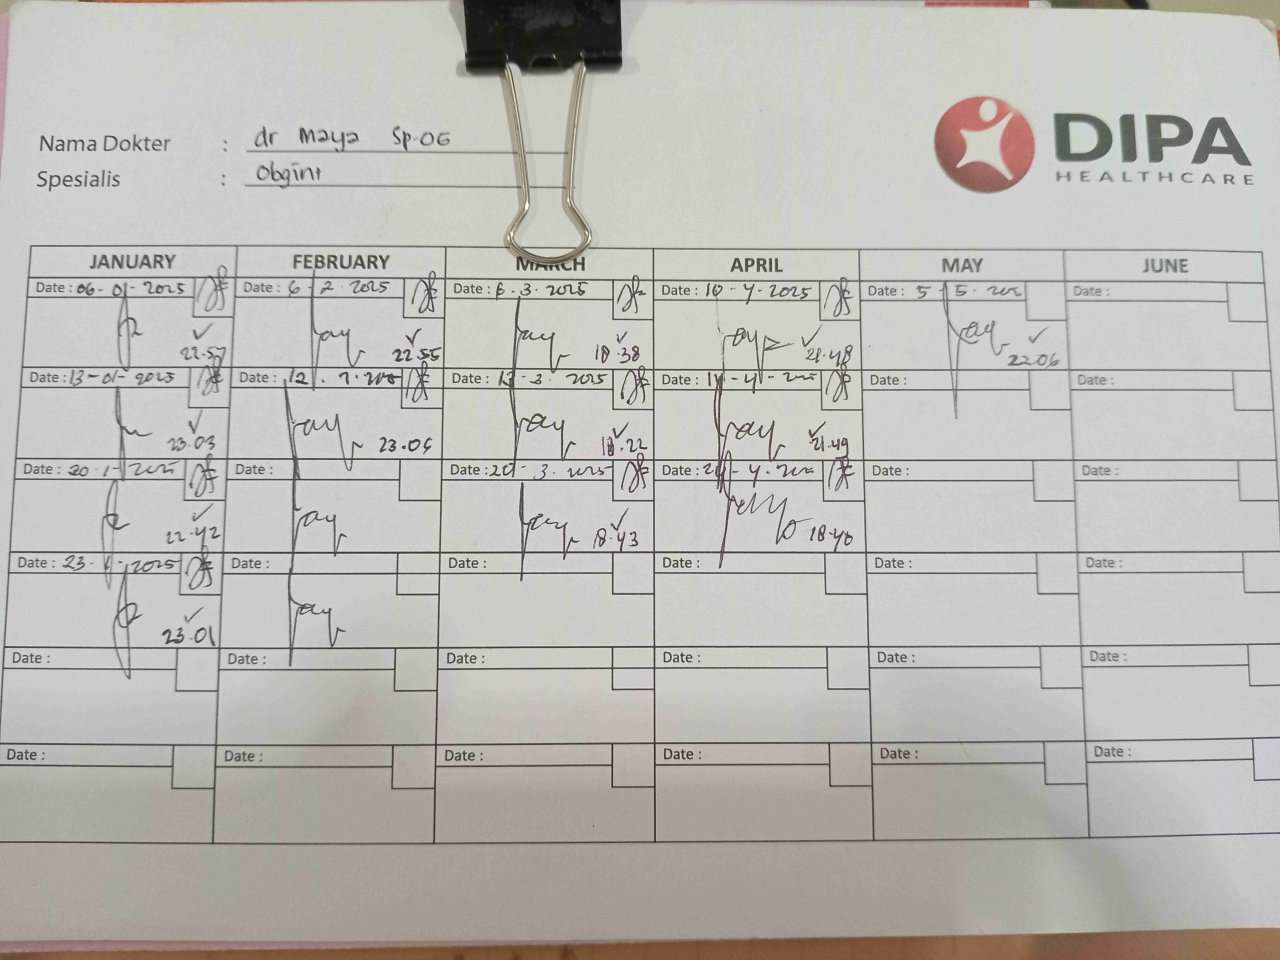 Nama Dokter : dr Maya Sp.OG
Spesialis : Obgini
DIPA
HEALTHCARE
JANUARY FEBRUARY MARCH APRIL MAY JUNE
Date : 06-01-2025 Date : 6-2-2025 Date : 6.3.2025 Date : 10-4-2025 Date : 5-5-202 Date :
22.57 22.55 18.38 21.48 22.06
Date : 13-01-2025 Date : 12. Date : 3.2025 Date : Date : Date :
23.03 23.05 18.22 21.49
Date : 20-1-2025 Date : Date : 20-3.2025 Date : Date : Date :
22.42 18.43 18.40
Date : 23-1-2025 Date : Date : Date : Date : Date :
23.01
Date : Date : Date : Date : Date : Date :
Date : Date : Date : Date : Date : Date :